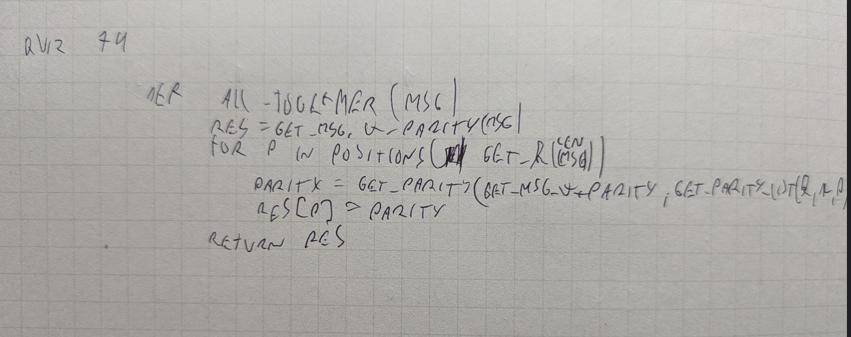 QUIZ 74
DEF ALL-TOGETHER(MSG)
RES = GET_MSG_W_PARITY(MSG)
FOR P IN POSITIONS( GET_R(LEN(MSG)))
PARITY = GET_PARITY(GET_MSG_W_PARITY, GET_PARITY_LIST(R, N, P)
RES[P] = PARITY
RETURN RES